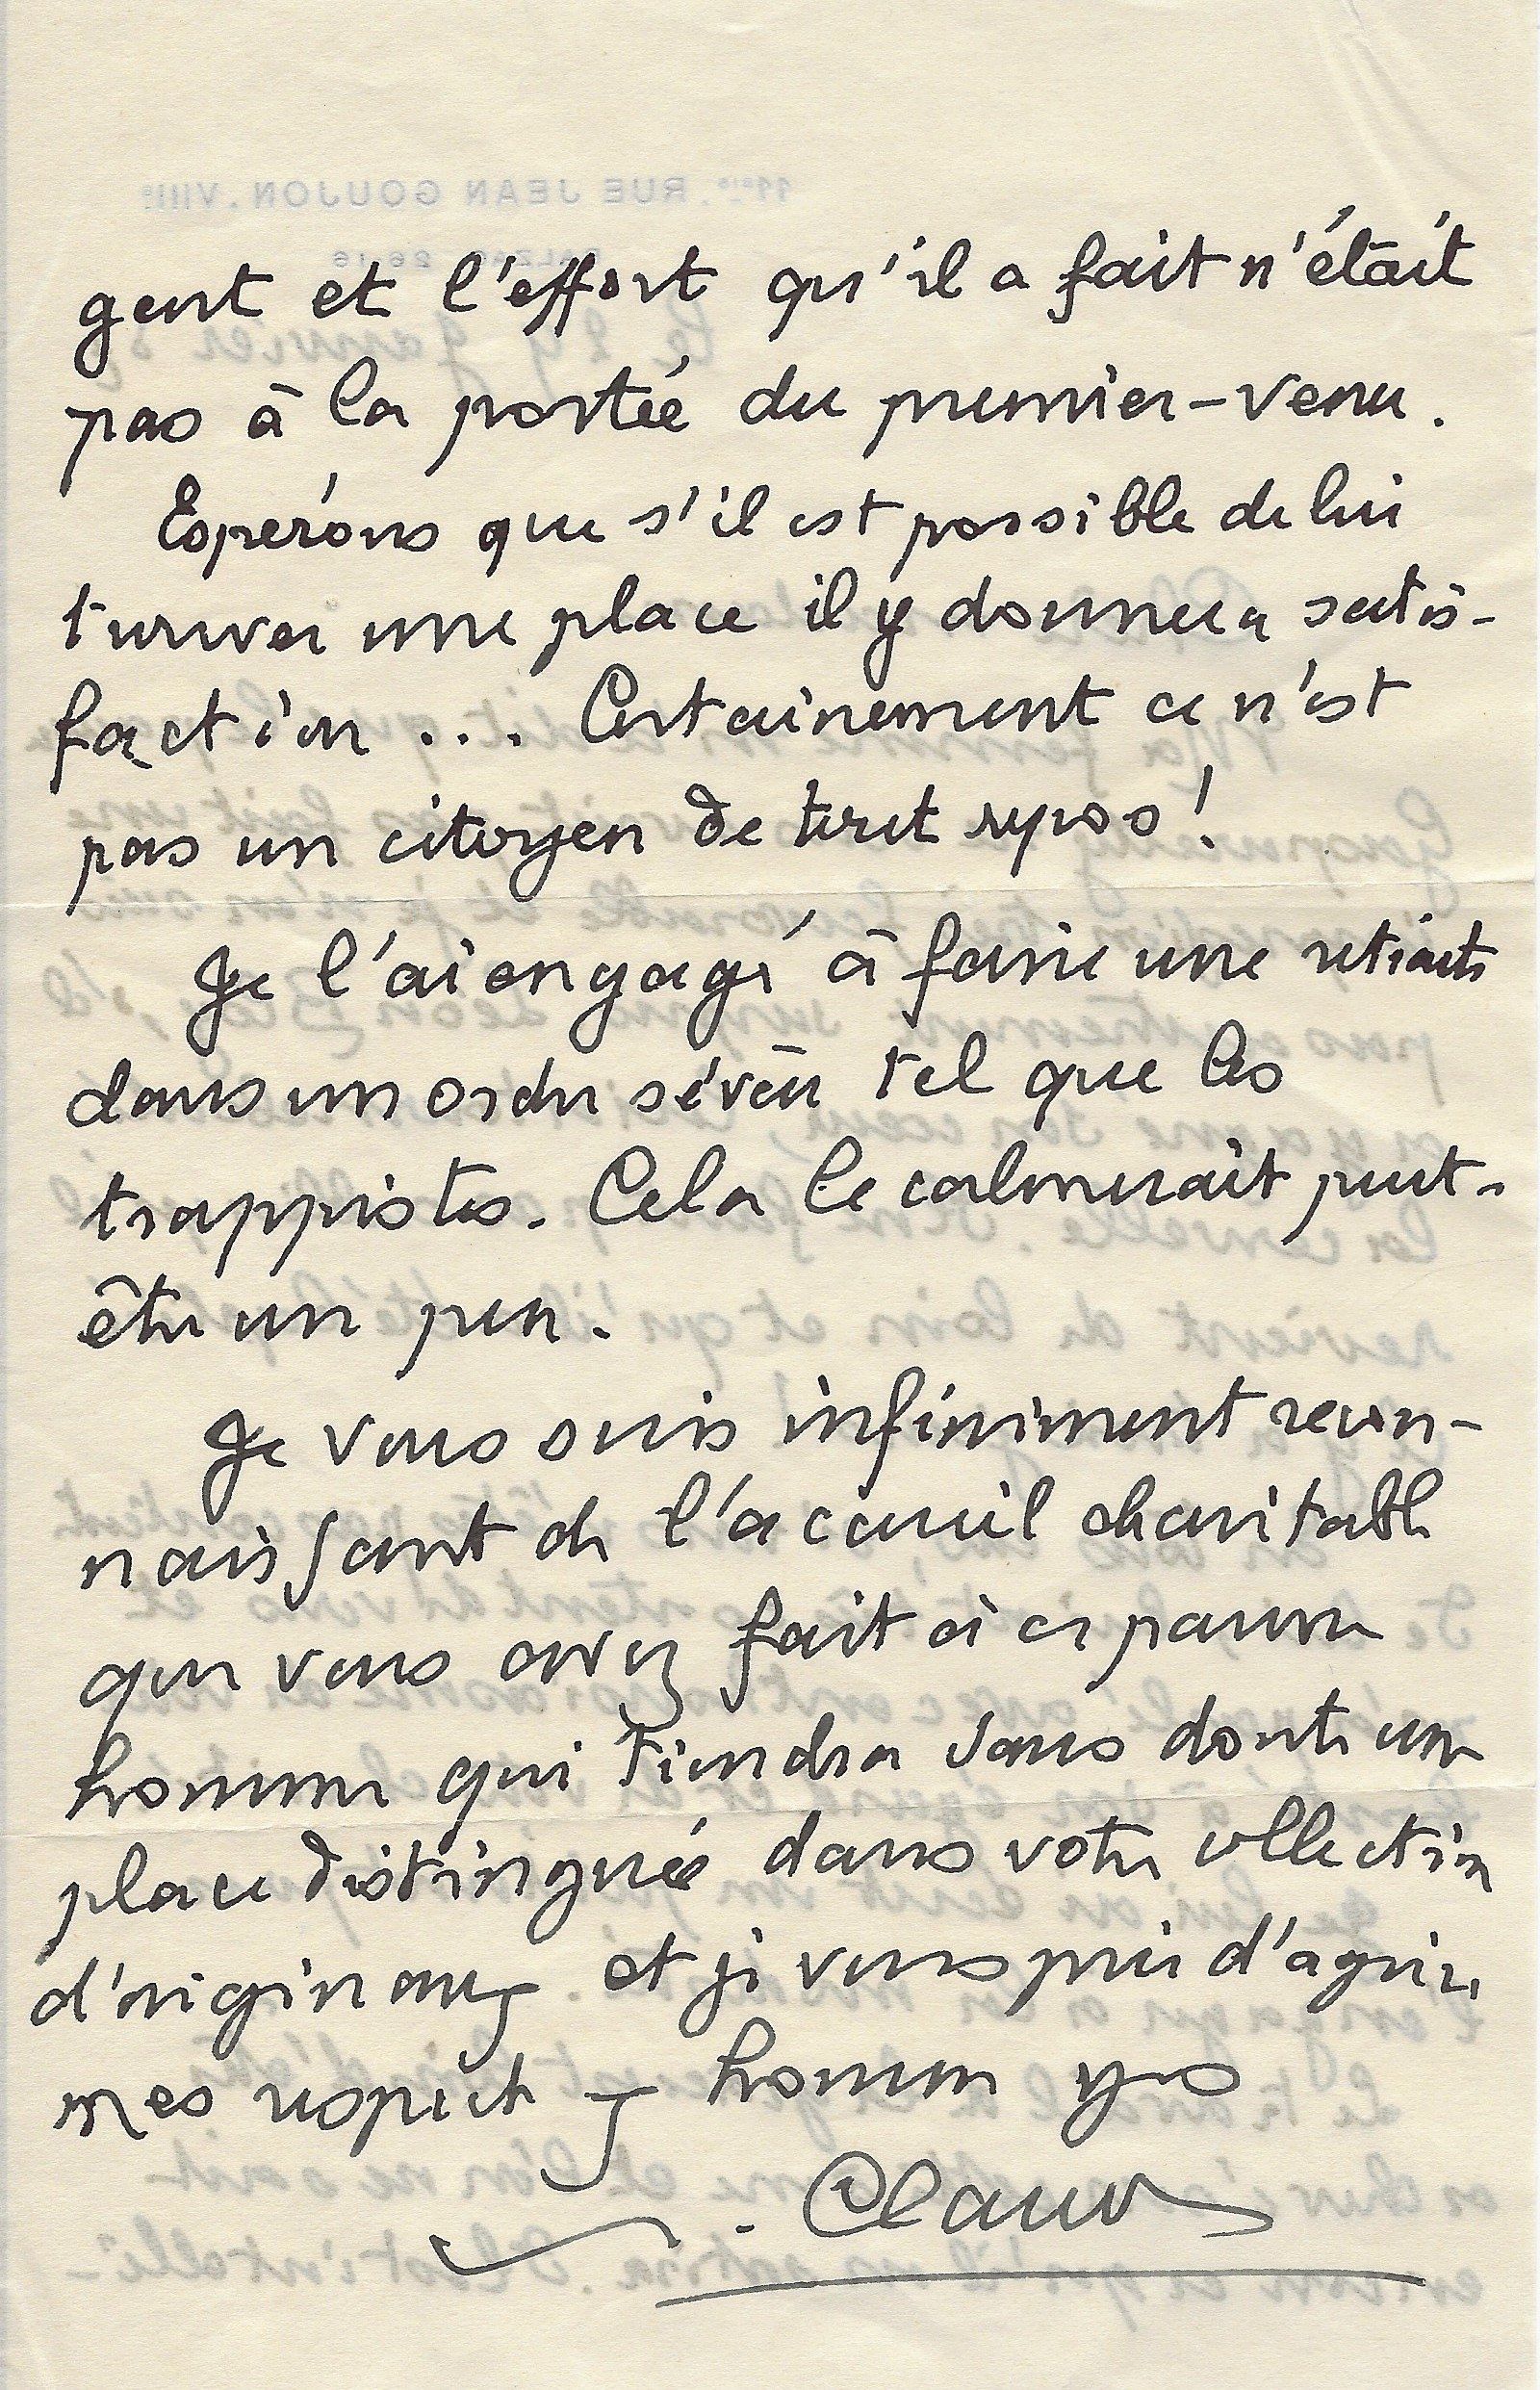 gent et l'effort qu'il a fait n'était
pas à la portée du premier-venu.
Espérons que s'il est possible de lui
trouver une place il y donnera satis-
faction ... Certainement ce n'est
pas un citoyen de tout repos !
Je l'ai engagé à faire une retraite
dans un ordre sévère tel que les
trappistes. Cela le calmerait peut-
être un peu.
Je vous suis infiniment recon-
naissant de l'accueil charitable
que vous avez fait à ce pauvre
homme qui tiendra sans doute une
place distinguée dans votre collection
d'originaux et je vous prie d'agréer
mes respectx hommages
Claudel